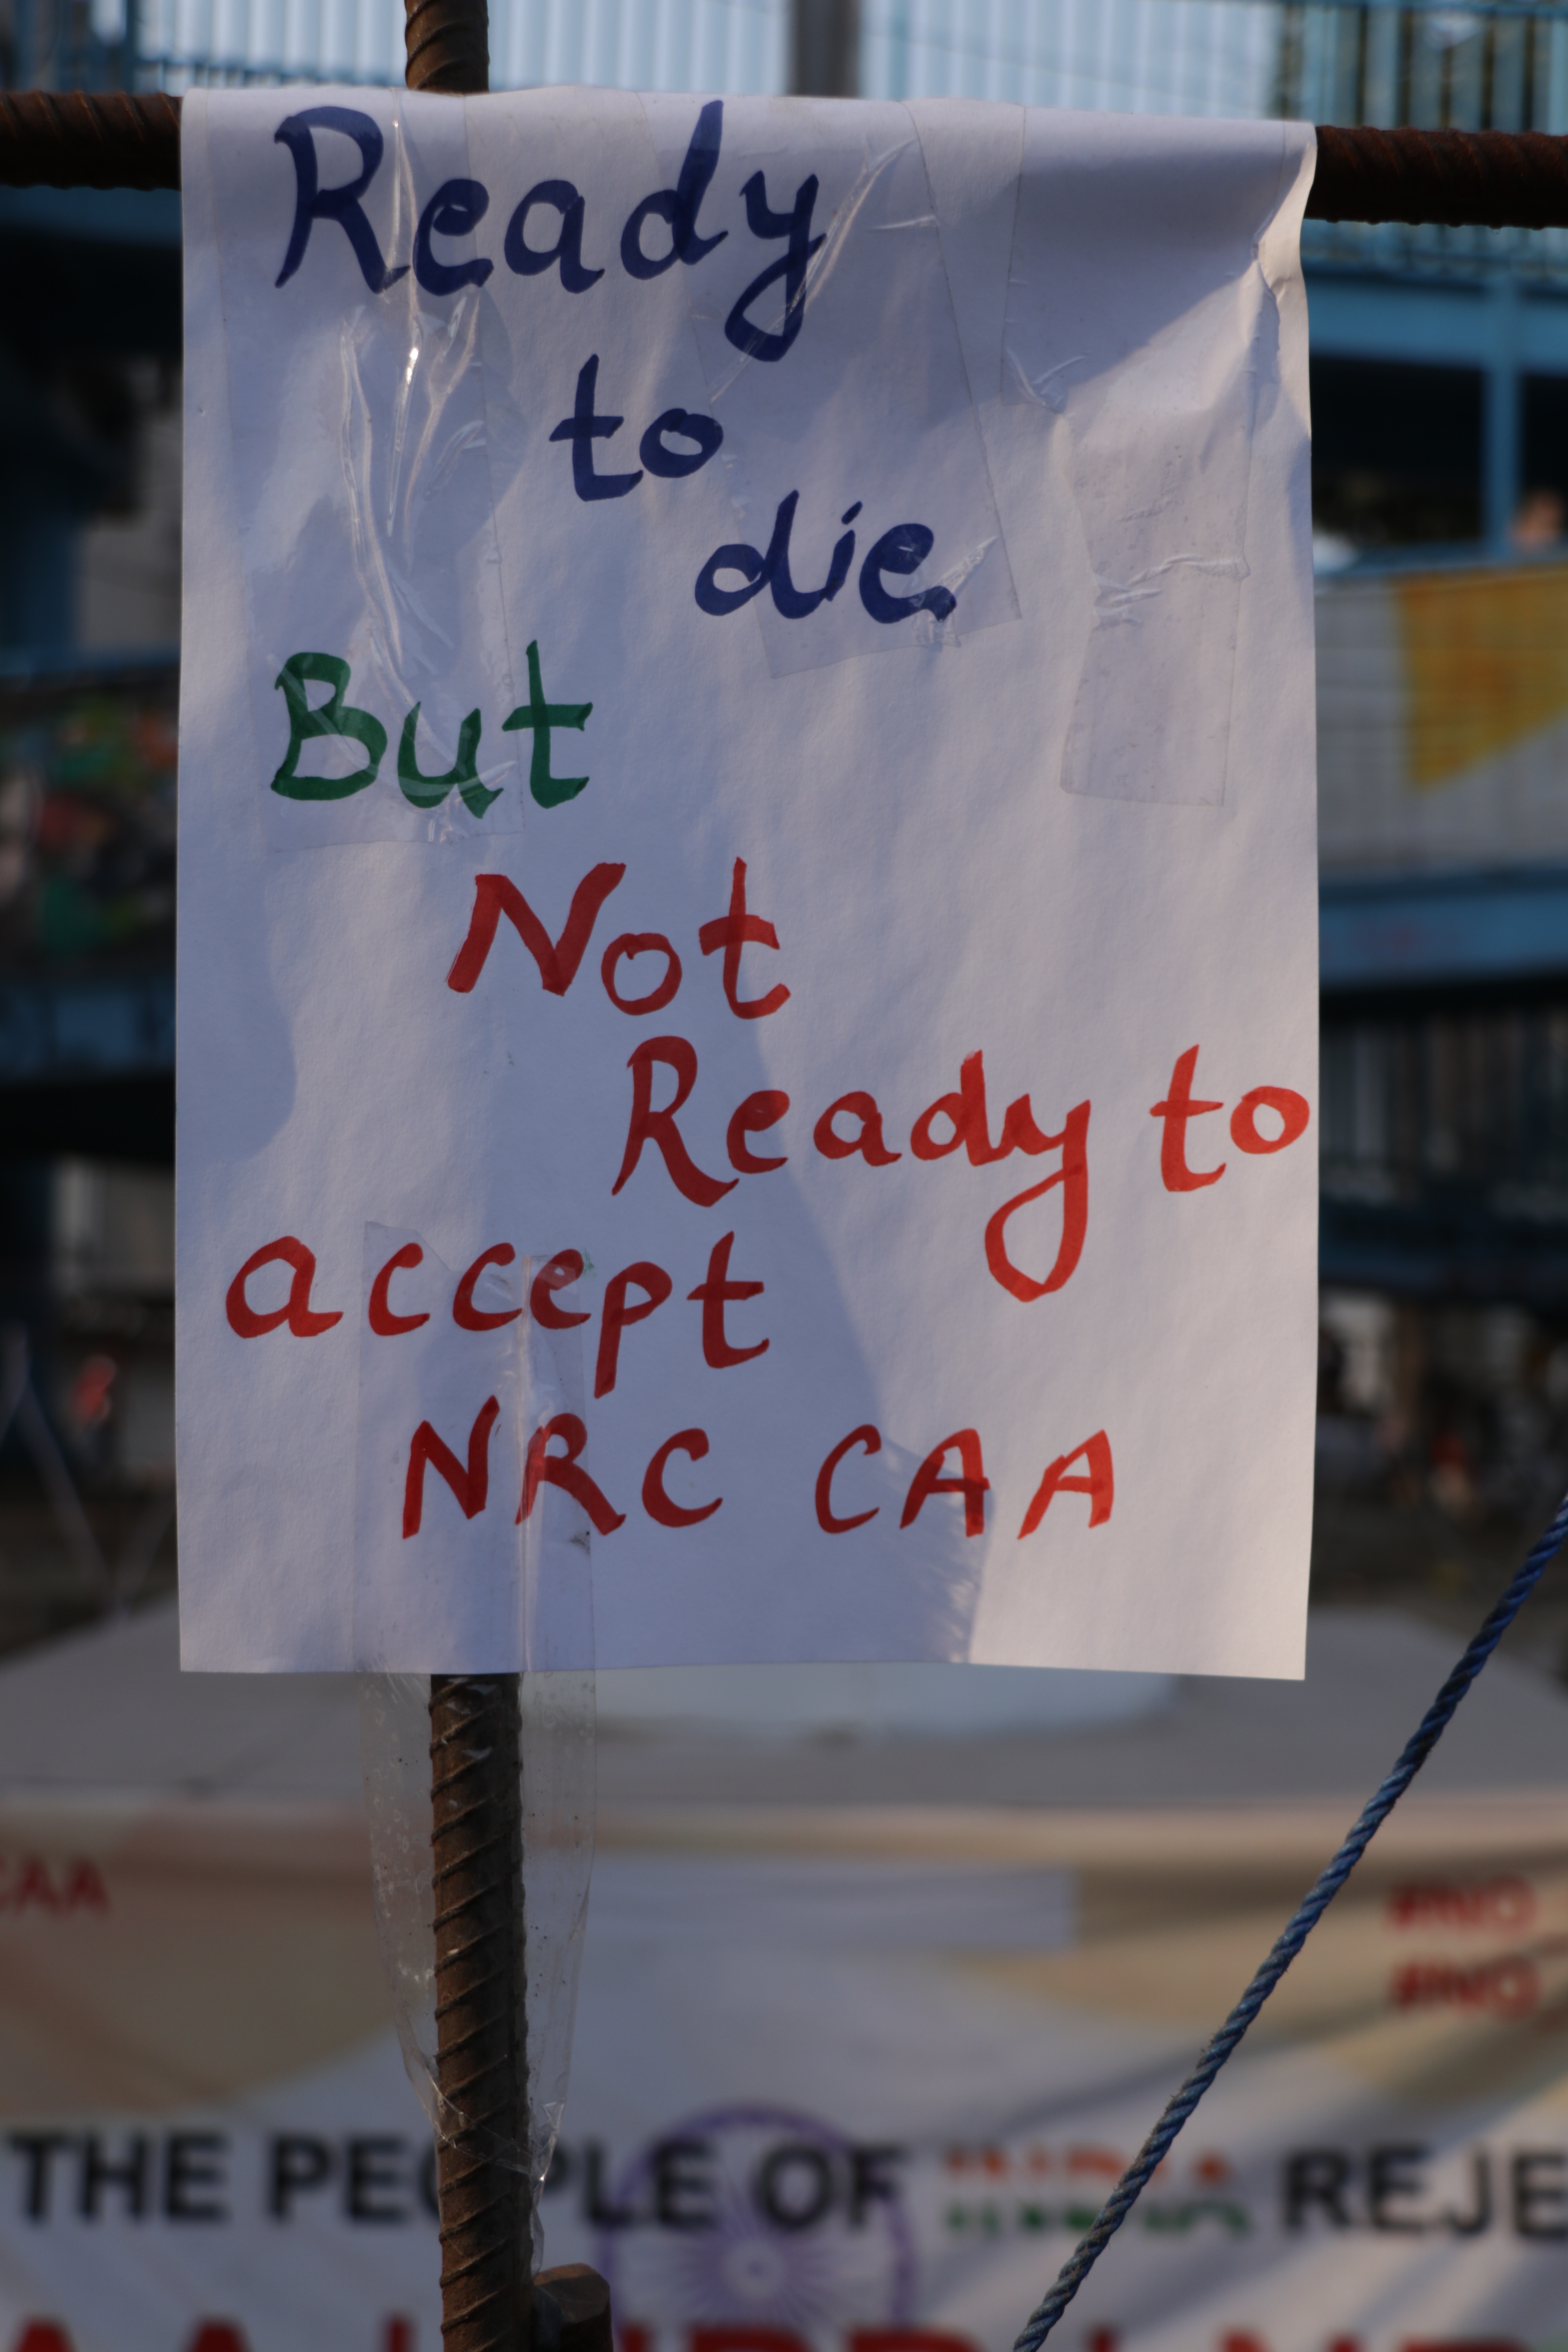 Ready
to
die
But
Not
Ready to
accept
NRC CAA
CAA
#NO
#NO
THE PEOPLE OF INDIA REJE